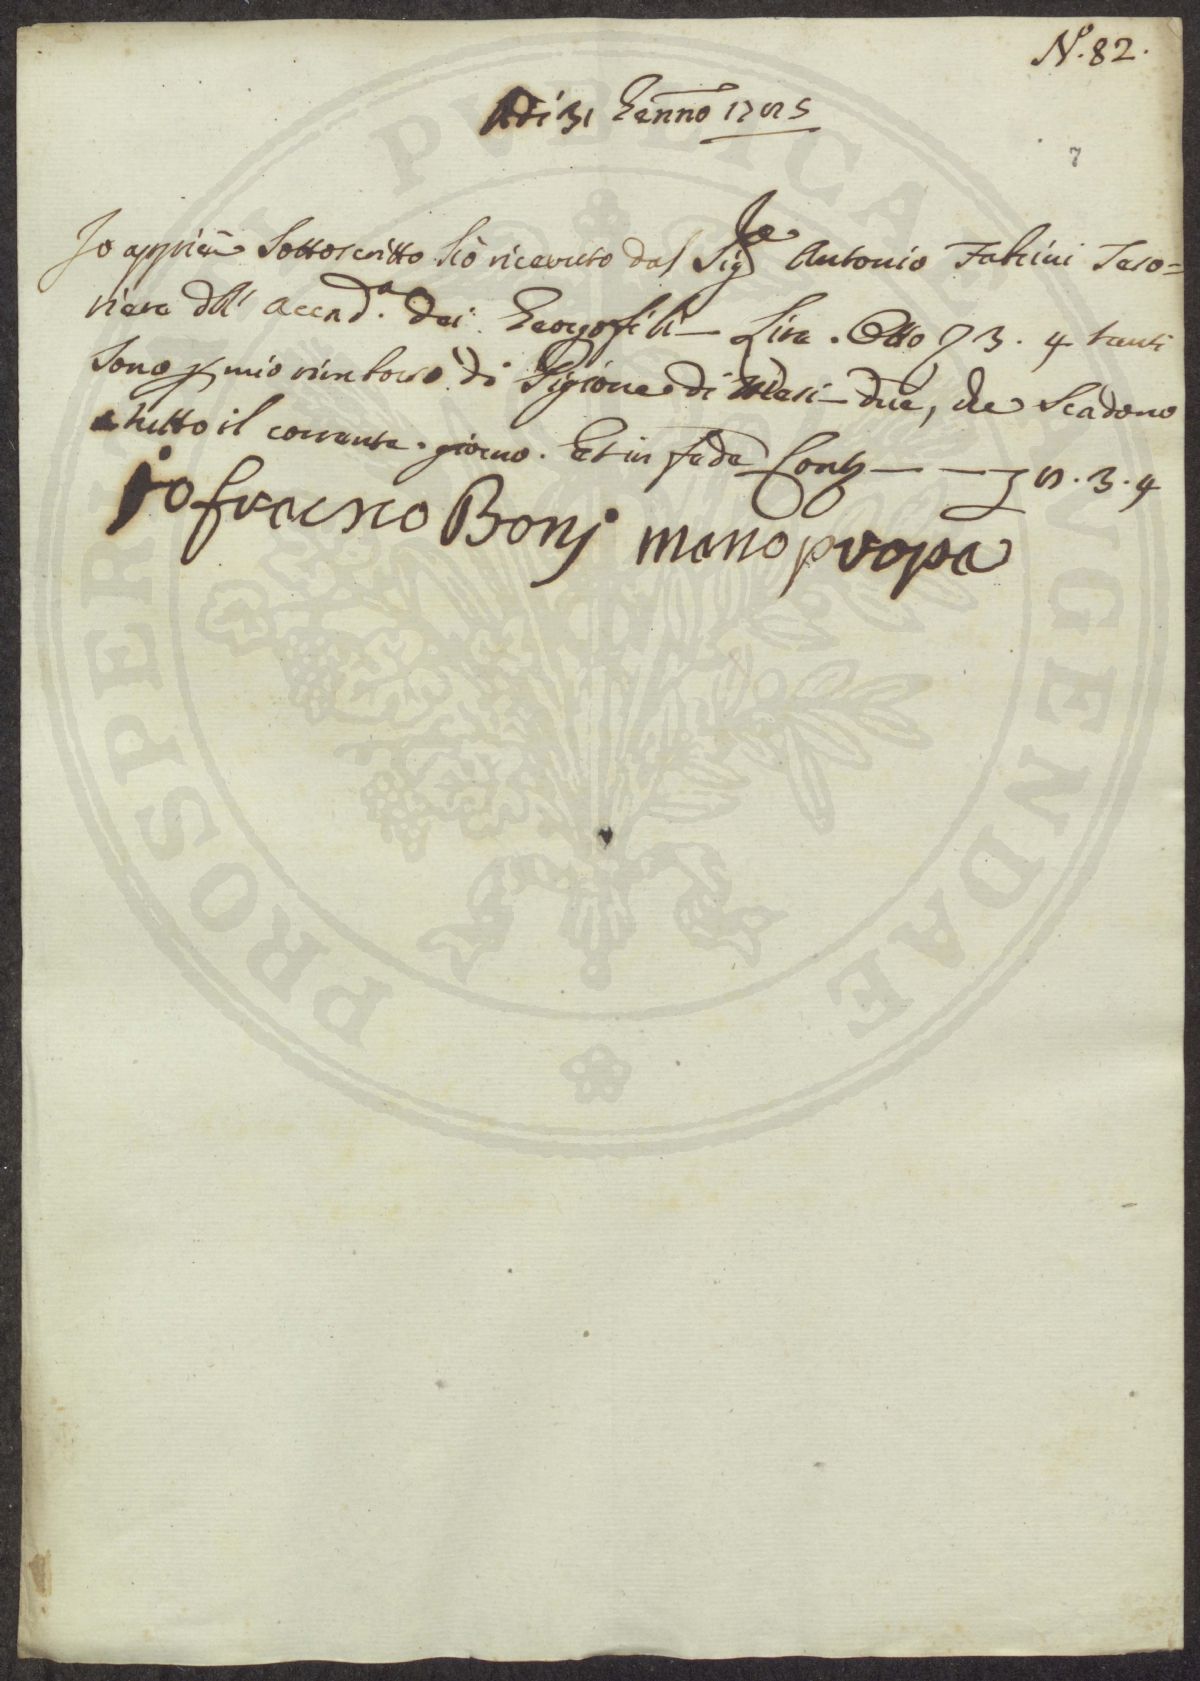 N.° 82.
Adi 31 Genno 1785
7
Io appiè Sottoscritto hò ricevuto dal Sig.re Antonio Fabrini Teso=
riere dell' Accad.a dei Georgofili — Lire Otto 3. 4 tanti
sono p mio rimborso di Pigione di Mesi due, che Scadono
a tutto il corrente giorno. Et in fede — 8. 3. 4
io francsco Bonj mano propa
PROSPERITATI PVBLICAE AVGENDAE